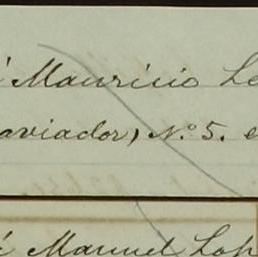 é Mauricio Le
aviador) N.º 5. e
é Manuel Lop